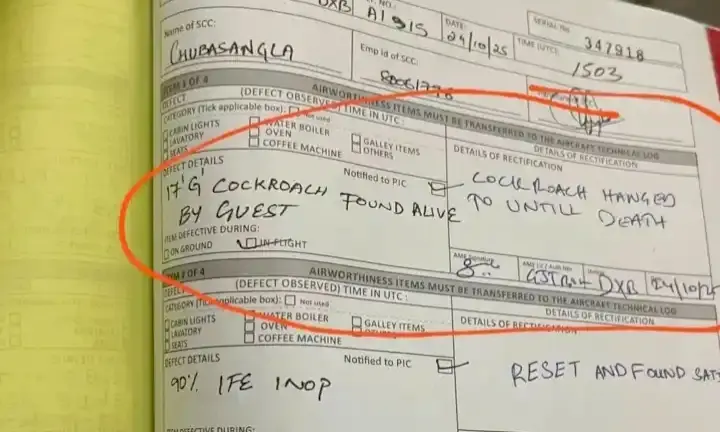 DXB
NO.
AI 915
DATE:
24/10/25
SERIAL No
347918
TIME (UTC)
1503
Name of SCC:
CHUBASANGLA
Emp Id of SCC:
ITEM 1 OF 4
AIRWORTHINESS ITEMS MUST BE TRANSFERRED TO THE AIRCRAFT TECHNICAL LOG
DEFECT
(DEFECT OBSERVED) TIME IN UTC:
DETAILS OF RECTIFICATION
CATEGORY (Tick applicable box):
Not used
CABIN LIGHTS
WATER BOILER
GALLEY ITEMS
LAVATORY
OVEN
OTHERS
SEATS
COFFEE MACHINE
DETAILS OF RECTIFICATION
DEFECT DETAILS
Notified to PIC
17'G' COCKROACH FOUND ALIVE
BY GUEST
COCKROACH HANGED
TO UNTILL DEATH
ITEM DEFECTIVE DURING:
ON GROUND
IN-FLIGHT
DXB
24/10/25
ITEM 2 OF 4
AIRWORTHINESS ITEMS MUST BE TRANSFERRED TO THE AIRCRAFT TECHNICAL LOG
(DEFECT OBSERVED) TIME IN UTC:
DETAILS OF RECTIFICATION
CATEGORY (Tick applicable box):
Not used
CABIN LIGHTS
WATER BOILER
GALLEY ITEMS
LAVATORY
OVEN
SEATS
COFFEE MACHINE
DETAILS OF RECTIFICATION
DEFECT DETAILS
Notified to PIC
90% IFE INOP
RESET AND FOUND SAT
ITEM DEFECTIVE DURING: